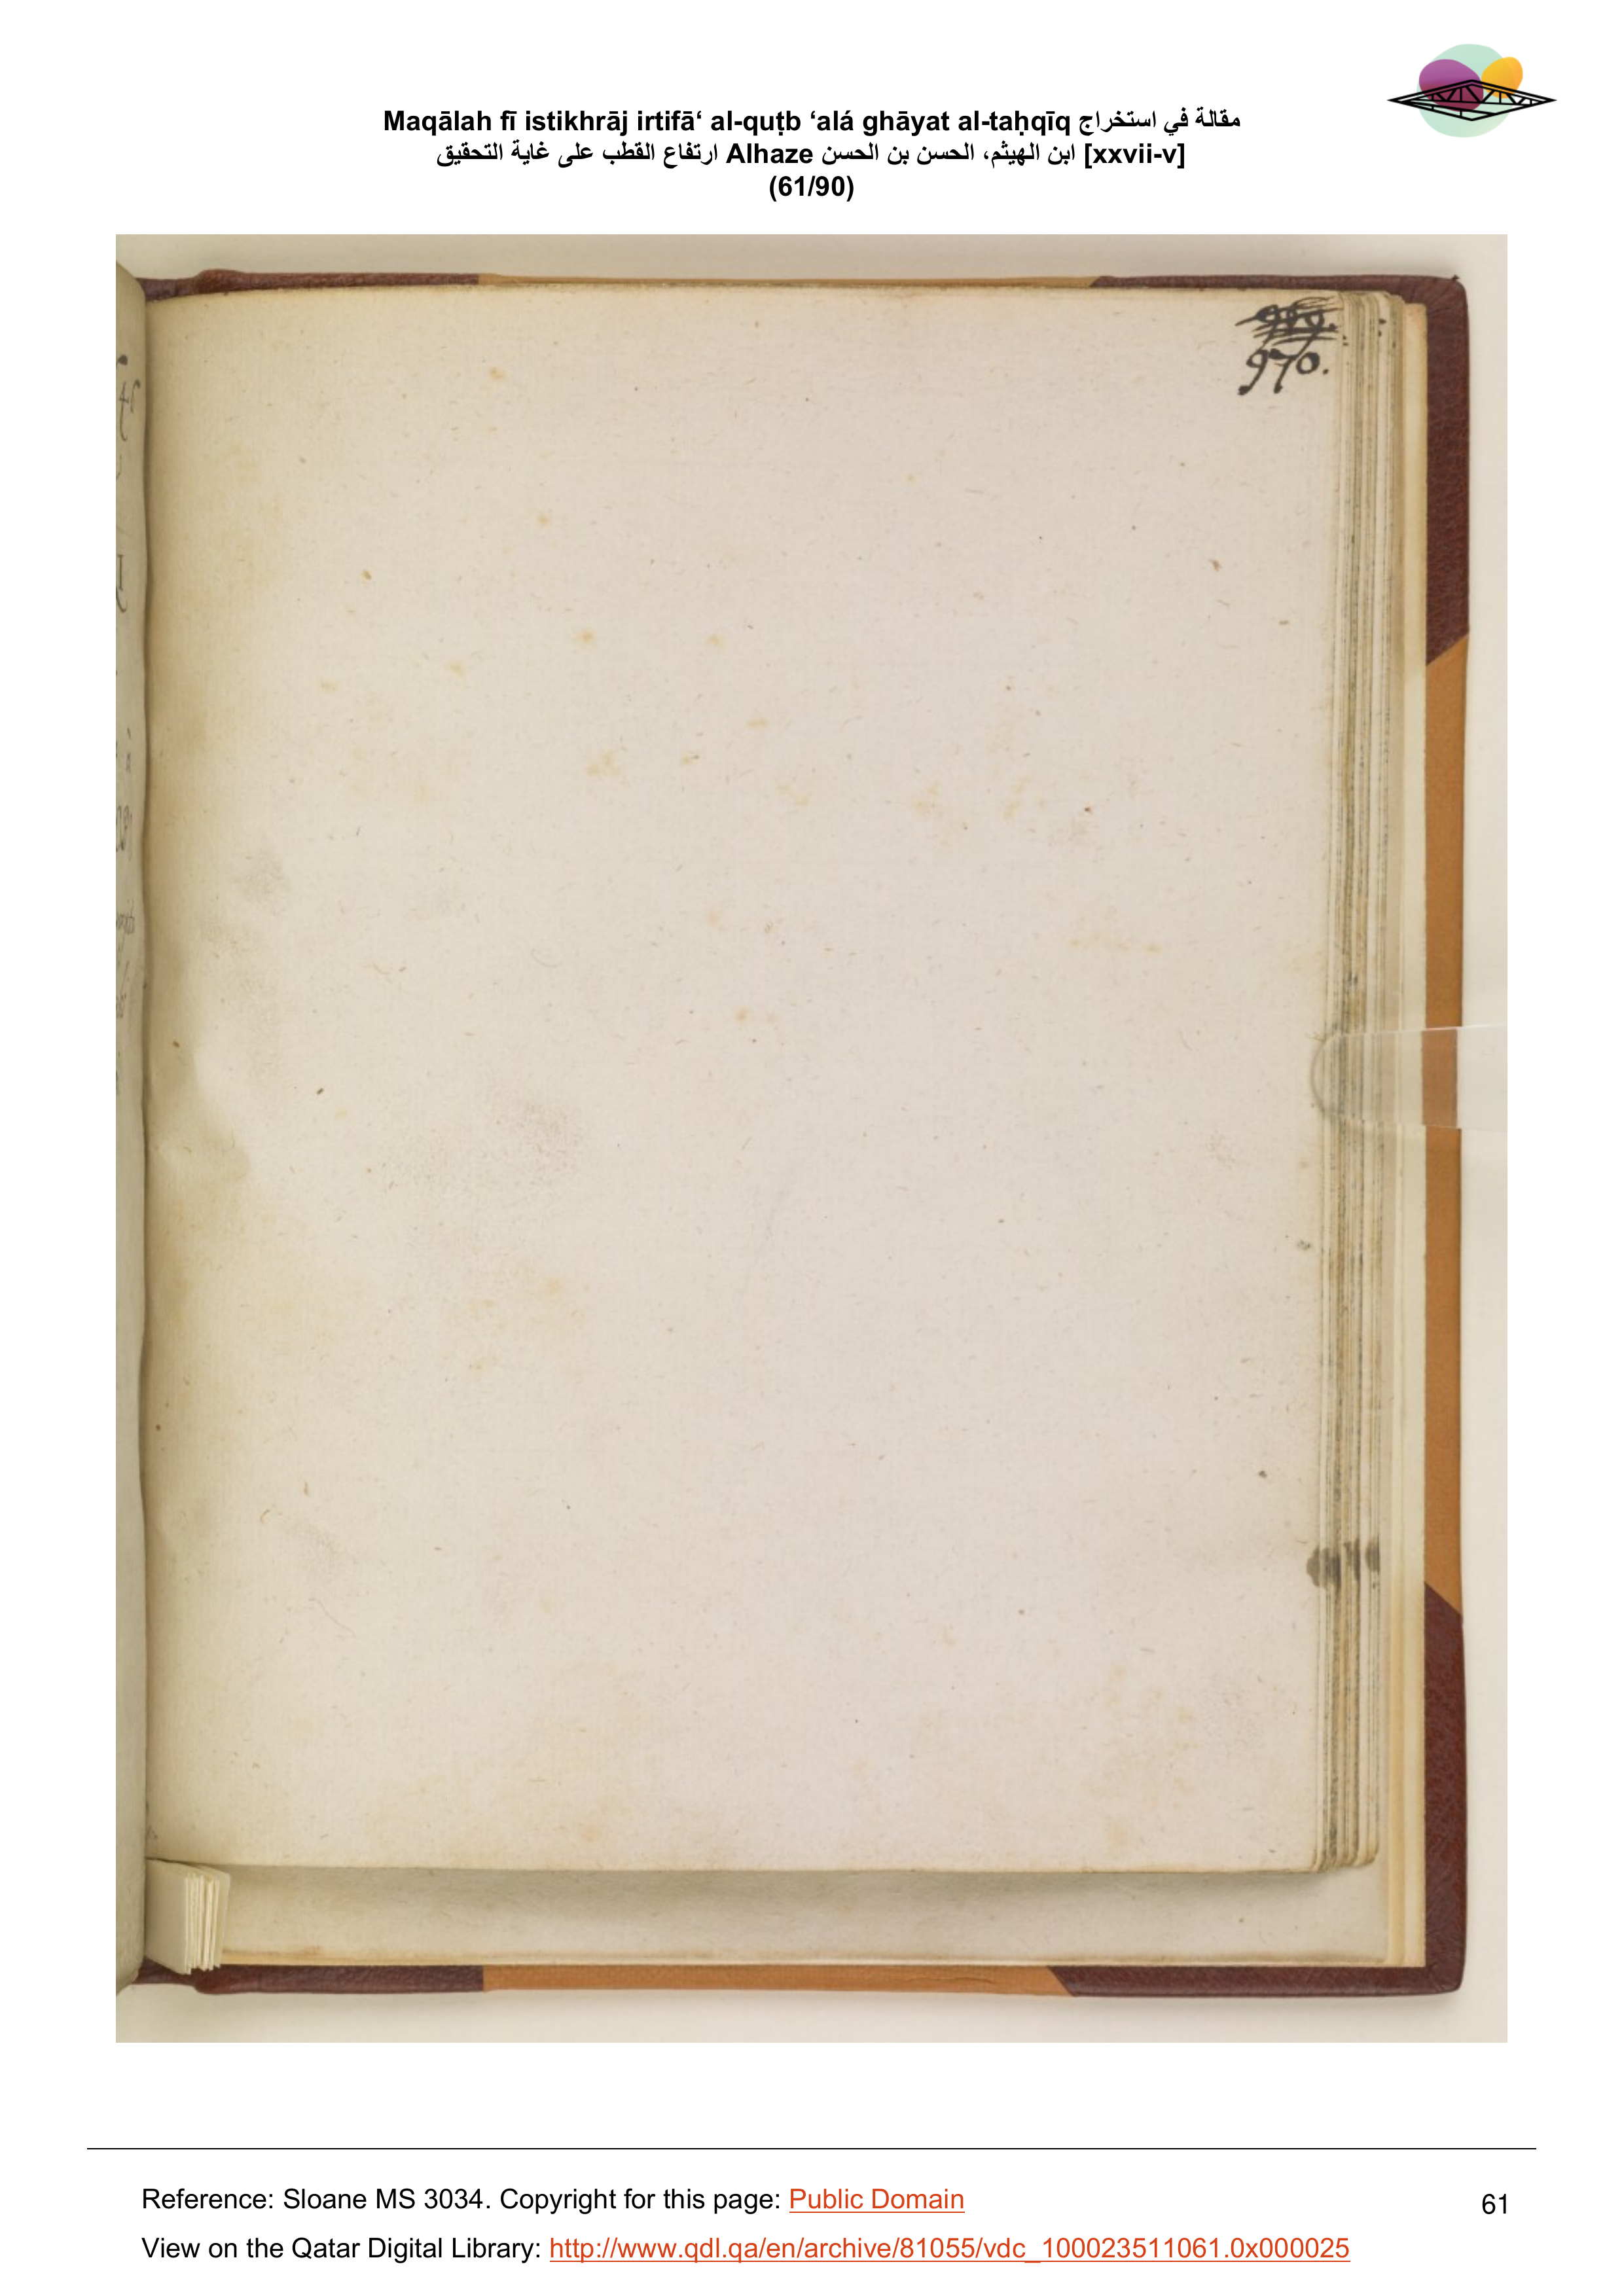 Maqālah fī istikhrāj irtifā‘ al-quṭb ‘alá ghāyat al-taḥqīq مقالة في استخراج
ارتفاع القطب على غاية التحقيق Alhaze ابن الهيثم، الحسن بن الحسن [xxvii-v]
(61/90)
970.
Reference: Sloane MS 3034. Copyright for this page: Public Domain
61
View on the Qatar Digital Library: http://www.qdl.qa/en/archive/81055/vdc_100023511061.0x000025